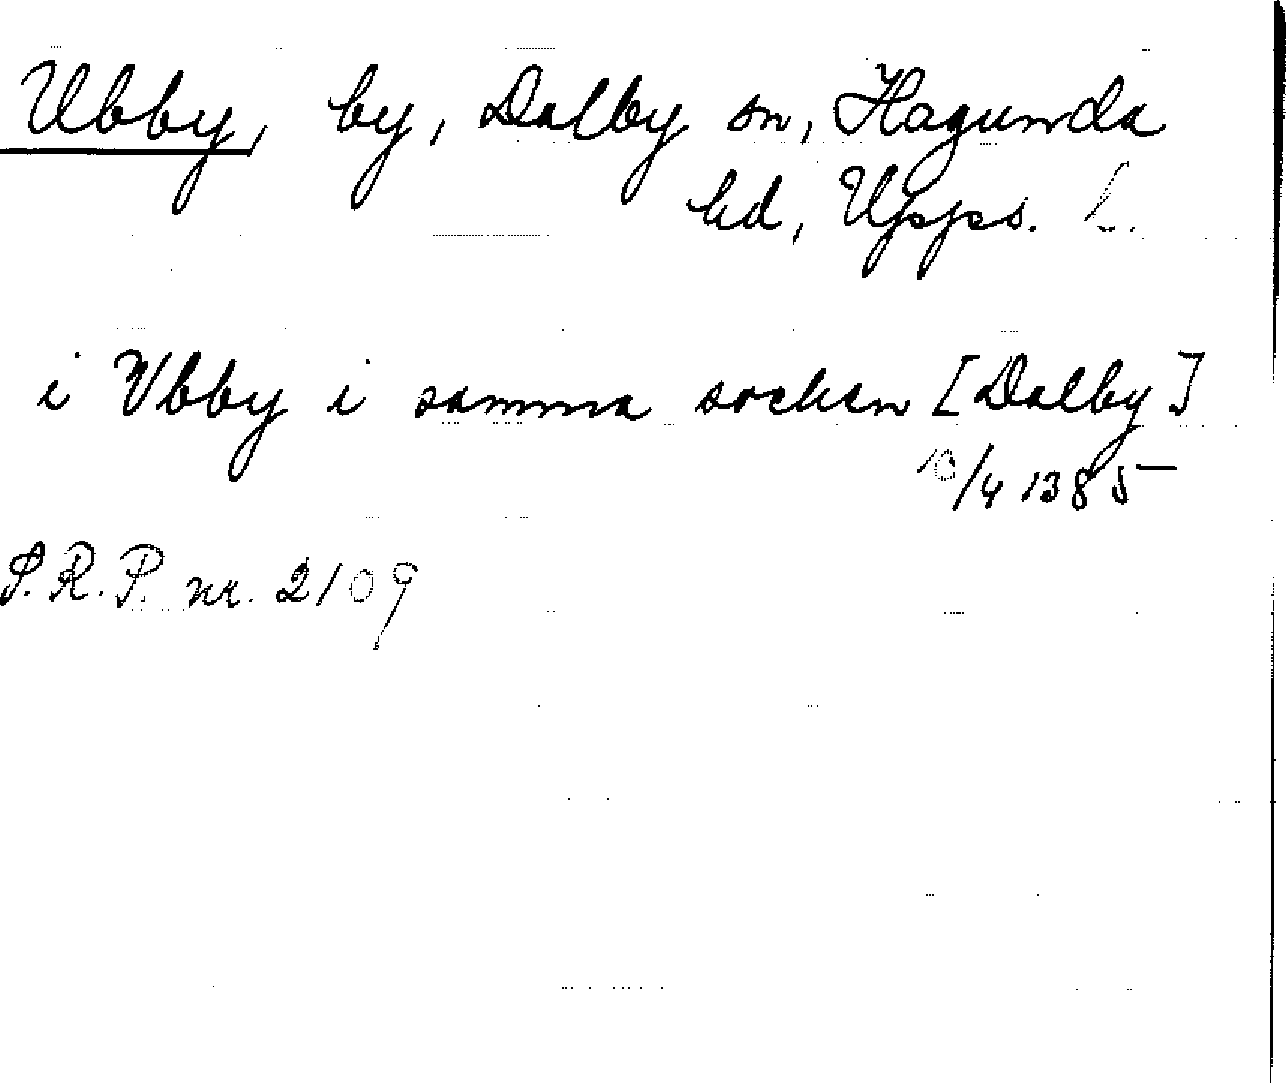 Ubby, by, Dalby sn, Hagunda
hd, Upps. L.
i Ubby i samma socken [Dalby]
10/4 1385
S.R.P. nr. 2109